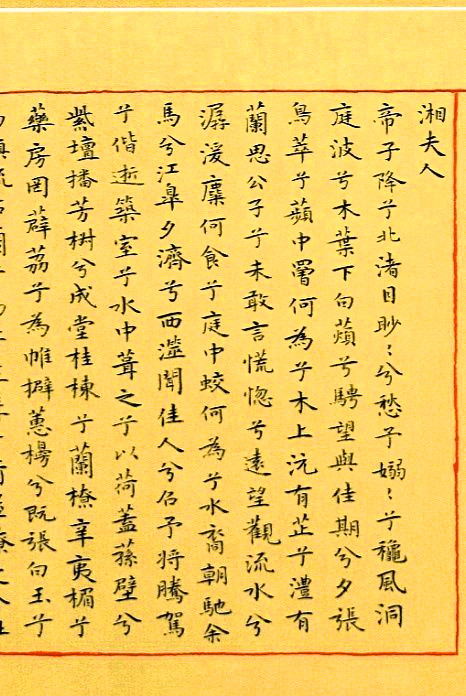 湘夫人
帝子降兮北渚目眇〻兮愁予嫋〻兮穐風洞
庭波兮木葉下白薠兮騁望與佳期兮夕張
鳥萃兮蘋中罾何為兮木上沅有芷兮澧有
蘭思公子兮未敢言慌惚兮遠望觀流水兮
潺湲麋何食兮庭中蛟何為兮水裔朝馳余
馬兮江臯夕濟兮西澨聞佳人兮召予將騰駕
兮偕逝築室兮水中葺之兮以荷蓋蓀壁兮
紫壇播芳椒兮成堂桂棟兮蘭橑辛夷楣兮
藥房罔薜荔兮為帷擗蕙櫋兮既張白玉兮